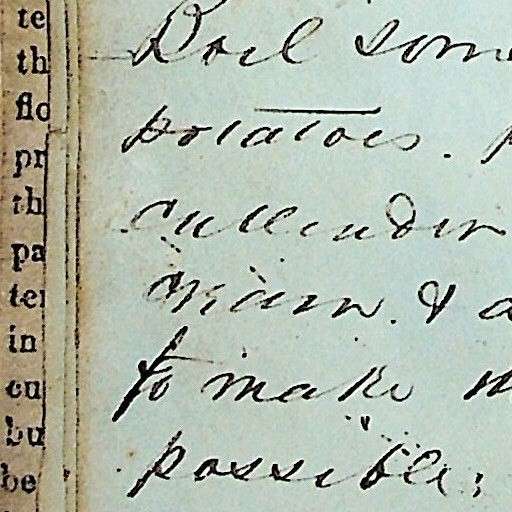 te
th
flo
pr
th
pa
ter
in
cu
bu
be
Boil some
potatoes.
cullender
cream. & a
to make
possible;